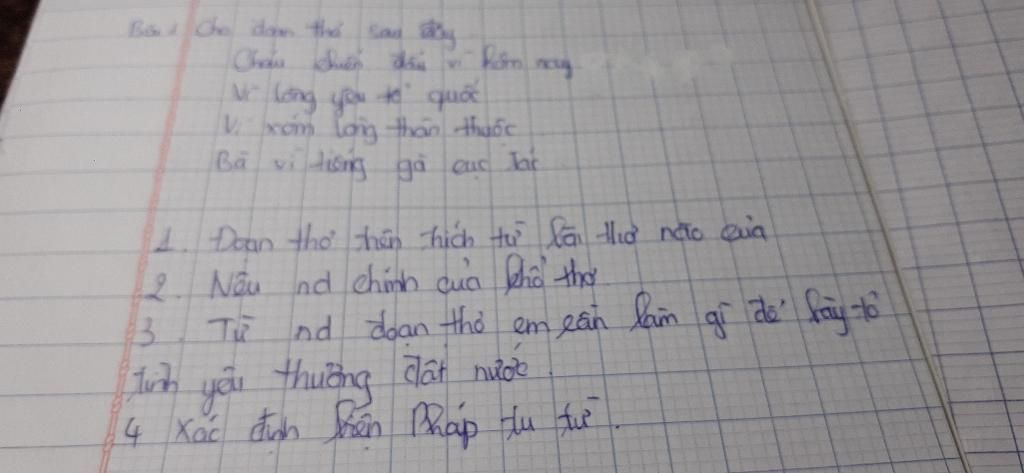 Bài 1 Cho đoạn thơ sau đây
Cháu chiến đấu vì hôm nay
Vì lòng yêu tổ quốc
Vì xóm làng thân thuộc
Bà vì tiếng gà cục tác
1. Đoạn thơ trên trích từ bài thơ nào của
2. Nêu nd chính của khổ thơ
3. Từ nd đoạn thơ em cần làm gì để bày tỏ
tình yêu thương đất nước.
4 Xác định biện pháp tu từ.